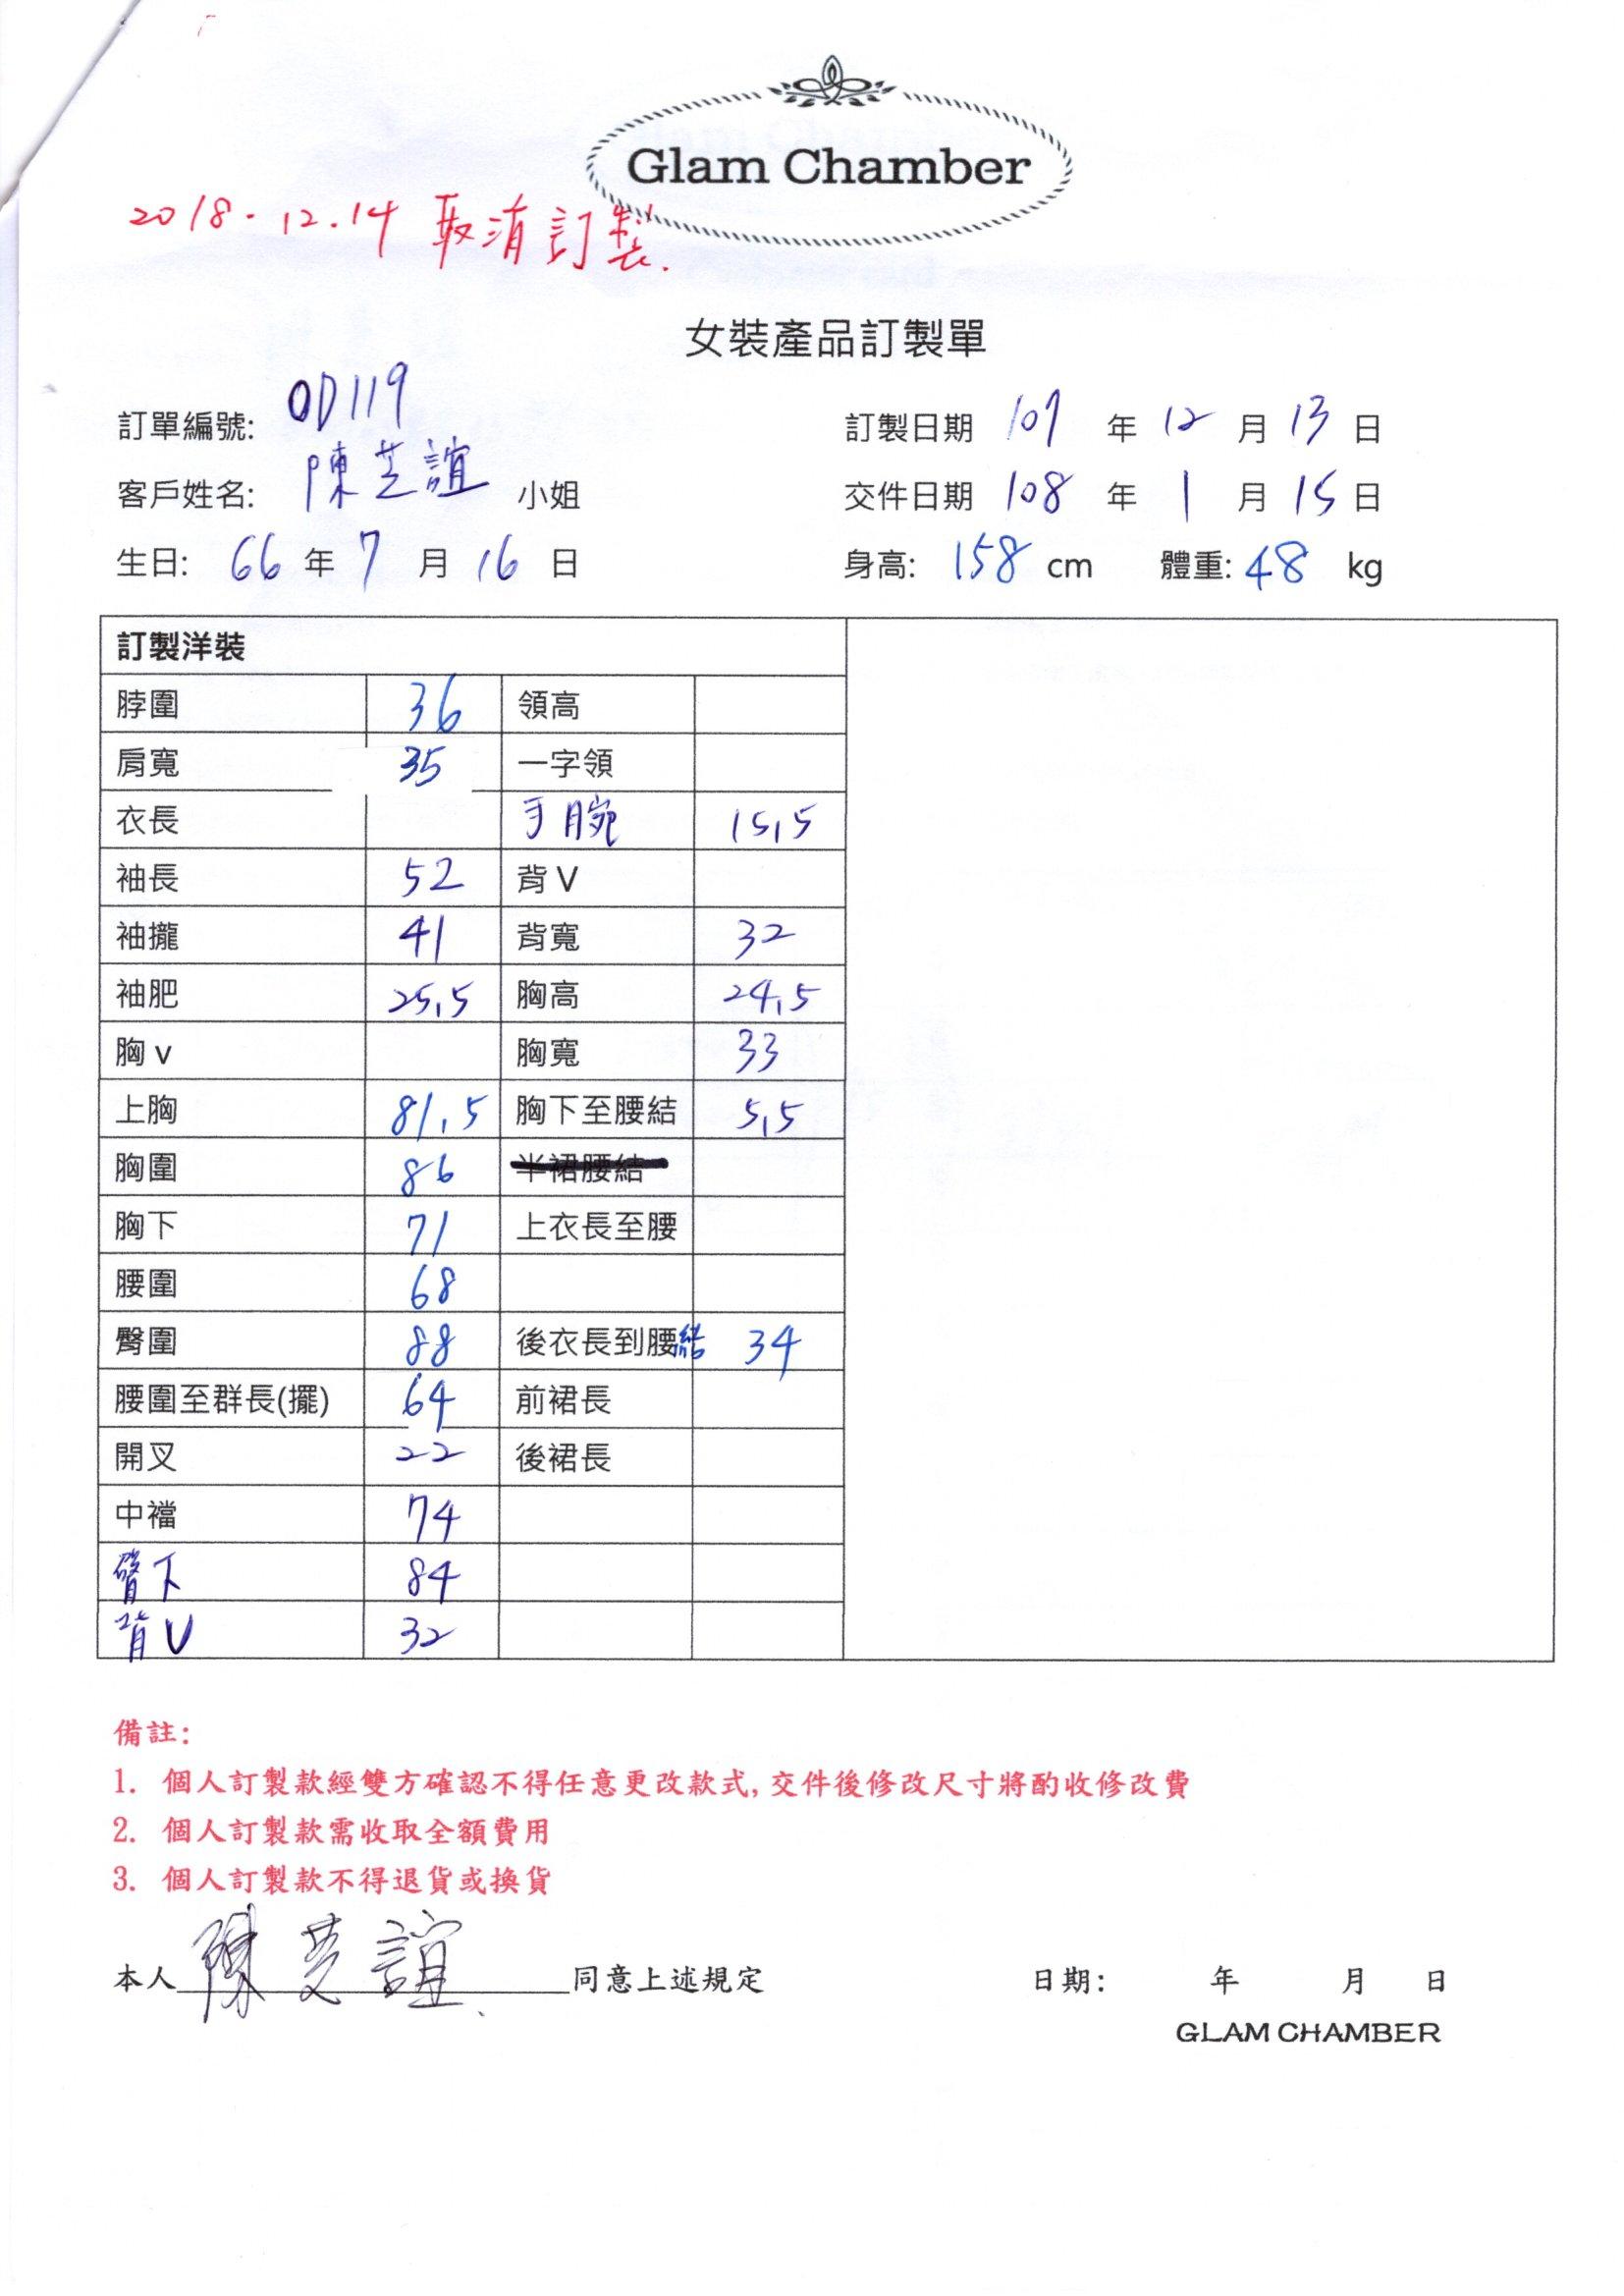 Glam Chamber
2018.12.14 取消訂製.
女裝產品訂製單
訂單編號: OD119 訂製日期 107 年 12 月 13 日
客戶姓名: 陳芝誼 小姐 交件日期 108 年 1 月 15 日
生日: 66 年 7 月 16 日 身高: 158 cm 體重: 48 kg
訂製洋裝
脖圍 36 領高
肩寬 35 一字領
衣長 手腕 15.5
袖長 52 背 V
袖攏 41 背寬 32
袖肥 25.5 胸高 24.5
胸 v 胸寬 33
上胸 81.5 胸下至腰結 5.5
胸圍 86 半裙腰結
胸下 71 上衣長至腰
腰圍 68
臀圍 88 後衣長到腰結 34
腰圍至群長(擺) 64 前裙長
開叉 22 後裙長
中襠 74
下 84
背V 32
備註:
1. 個人訂製款經雙方確認不得任意更改款式, 交件後修改尺寸將酌收修改費
2. 個人訂製款需收取全額費用
3. 個人訂製款不得退貨或換貨
本人 陳芝誼 同意上述規定 日期: 年 月 日
GLAM CHAMBER